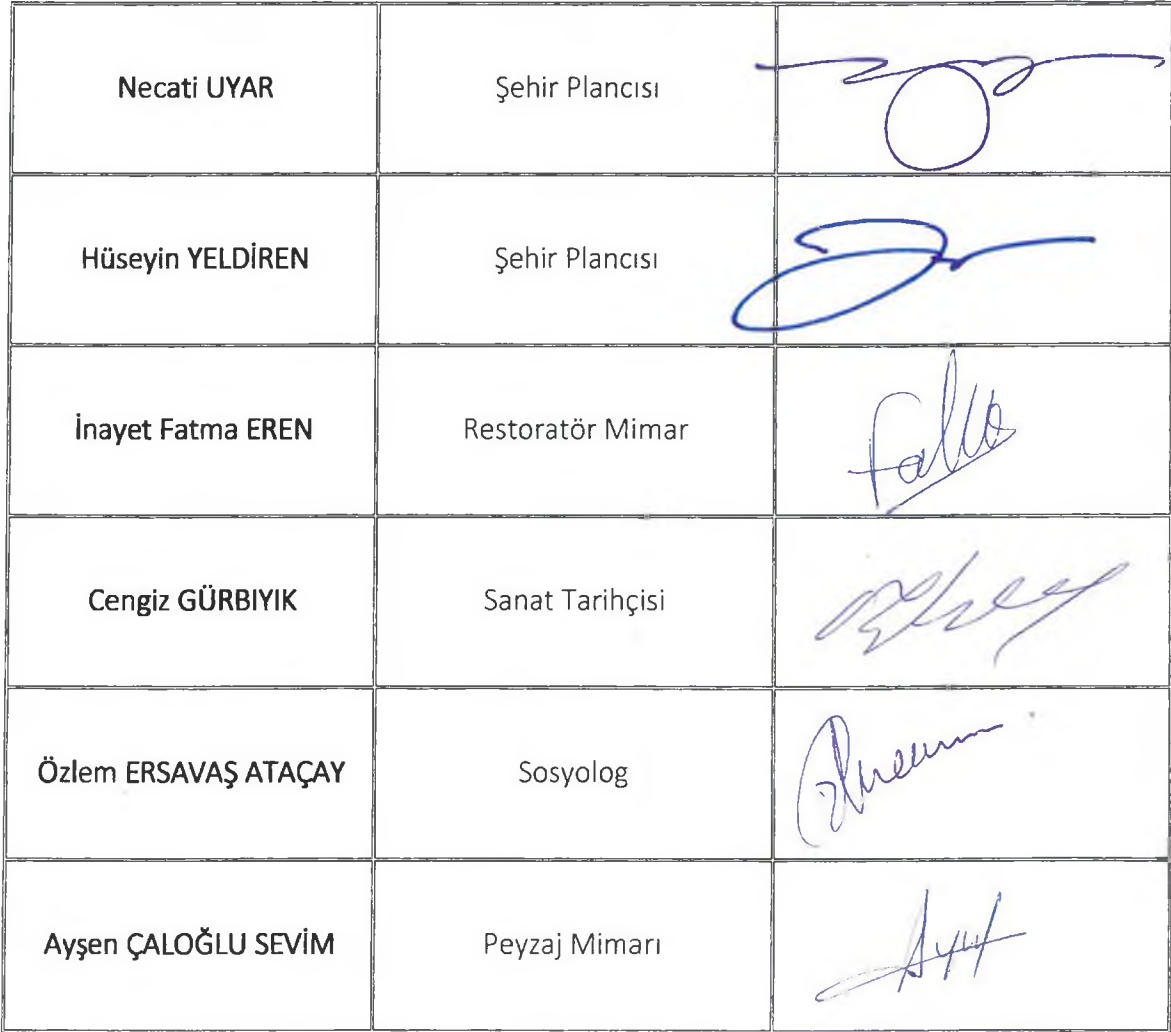 Necati UYAR Şehir Plancısı
Hüseyin YELDİREN Şehir Plancısı
İnayet Fatma EREN Restoratör Mimar
Cengiz GÜRBIYIK Sanat Tarihçisi
Özlem ERSAVAŞ ATAÇAY Sosyolog
Ayşen ÇALOĞLU SEVİM Peyzaj Mimarı